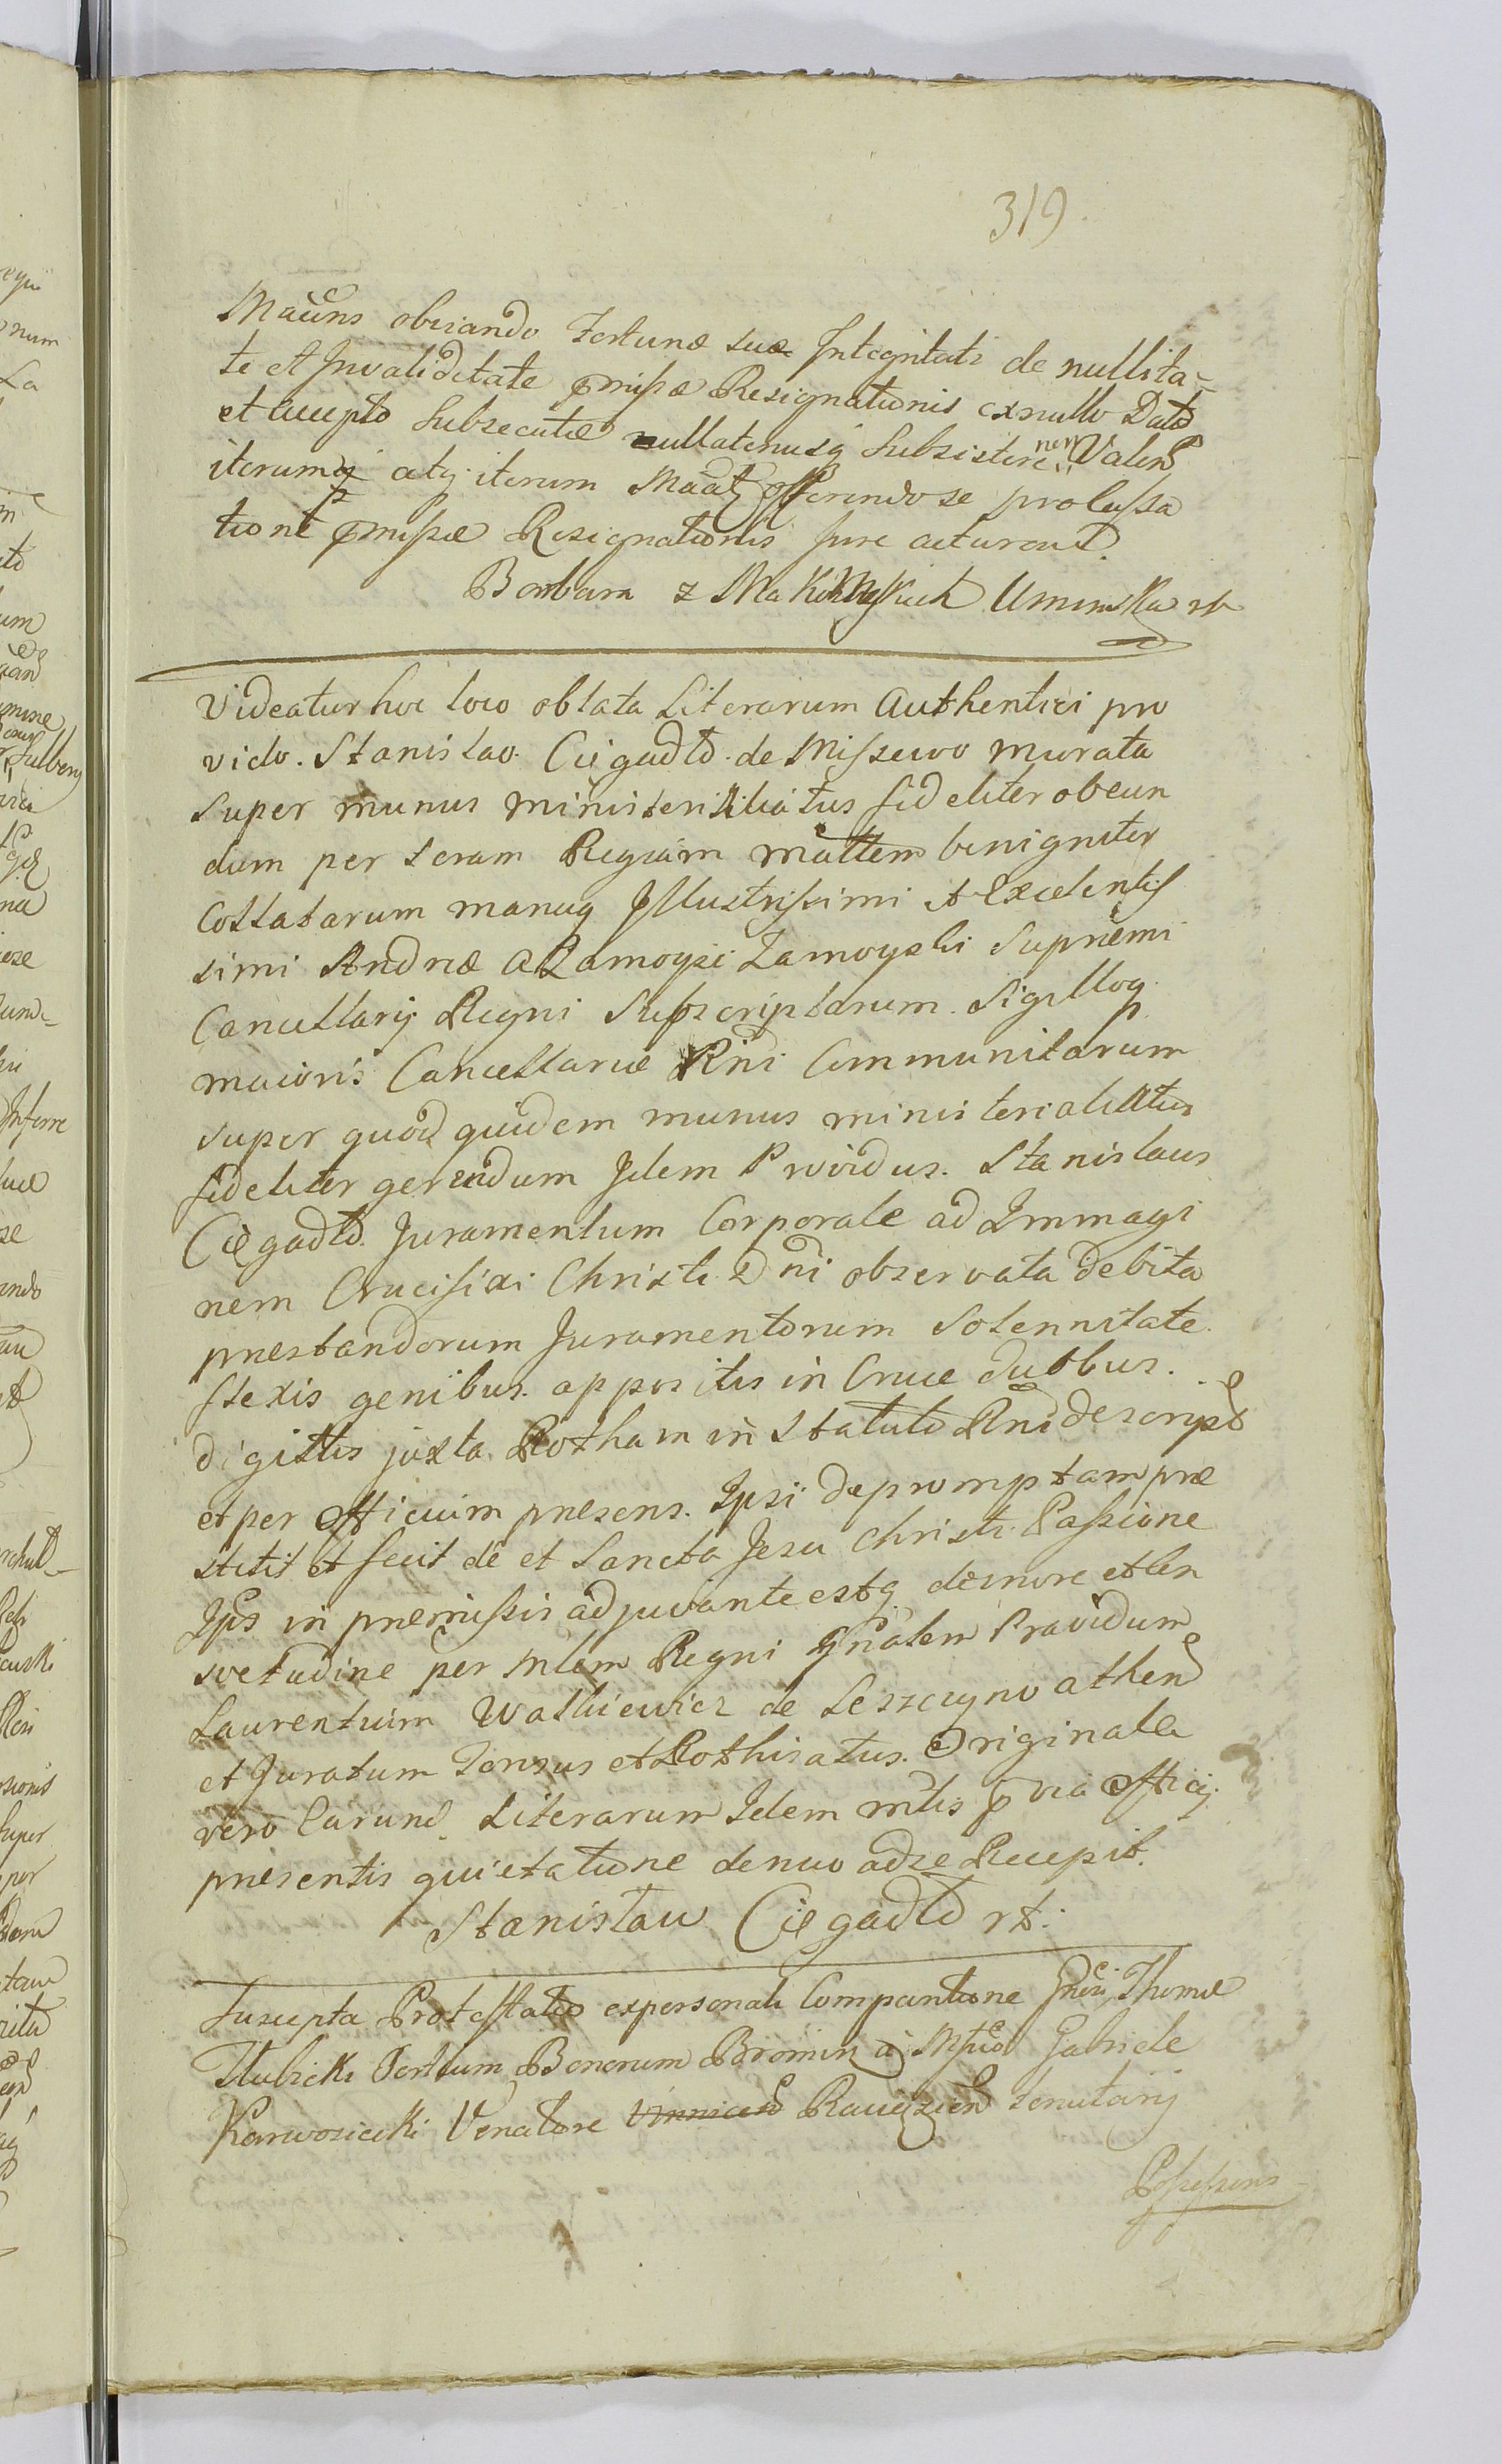 319.
obviando Fortunæ suæ Integritati de nullita-
te et Invaliditate præmissæ Resignationis ex nullo Dato
et accepto subsecutæ nullatenusq subsistere non Valen
iterumq atq iterum offerendo se pro cassa
tione præmissæ Resignationis Jure acturam
Barbara z Uminska
Videatur hoc loco oblata Literarum Authentici pro
vido. Stanislao. Ciegadlo. de Missewo murata
super munus ministerialiatus fideliter obeun
dum per Scram Regiam Mattem benigniter
Collatarum manuq Jllustrissimi et Excelentis
simi Andreæ a Zamoysci Zamoyski Supremi
Cancellarij Regni Subscriptarum. Sigilloq
maioris Cancellariæ Rni Communitarum
super quod quidem munus ministerialiatus
fideliter gerendum Jdem Providus. Stanislaus
Ciegadlo. Juramentum Corporale ad Immagi
nem Crucifixi Christi Dni observata debita
præstandorum Juramentorum Solennitate.
flexis genibus. appositis in Cruce duobus.
digittis juxta Rotham in Statuto Rni descript
et per Officium præsens. Ipsi depromptam præ
stitit et fecit de et Sancta Jesu Christi Passione
Jpso in præmissis adjuvante estq de more et Con
svetudine per Mlem Regni Gnalem Providum
Laurentium Walkiewicz de Leszczyno athen
et Juratum Tonsus et Rothisatus. Originale
vero Earund. Literarum Idem mlis præ via Officij
præsentis quietatione denuo ad se Recepit.
Stanislaw Ciegadlo
Suscepta Protestatio ex personali Comparitione Gnosi Thomæ
Hubicki Partium Bonorum Bromin a Mfico Gabriele
Karwosiecki Venatore Raciązien tenutarij
Possessoris